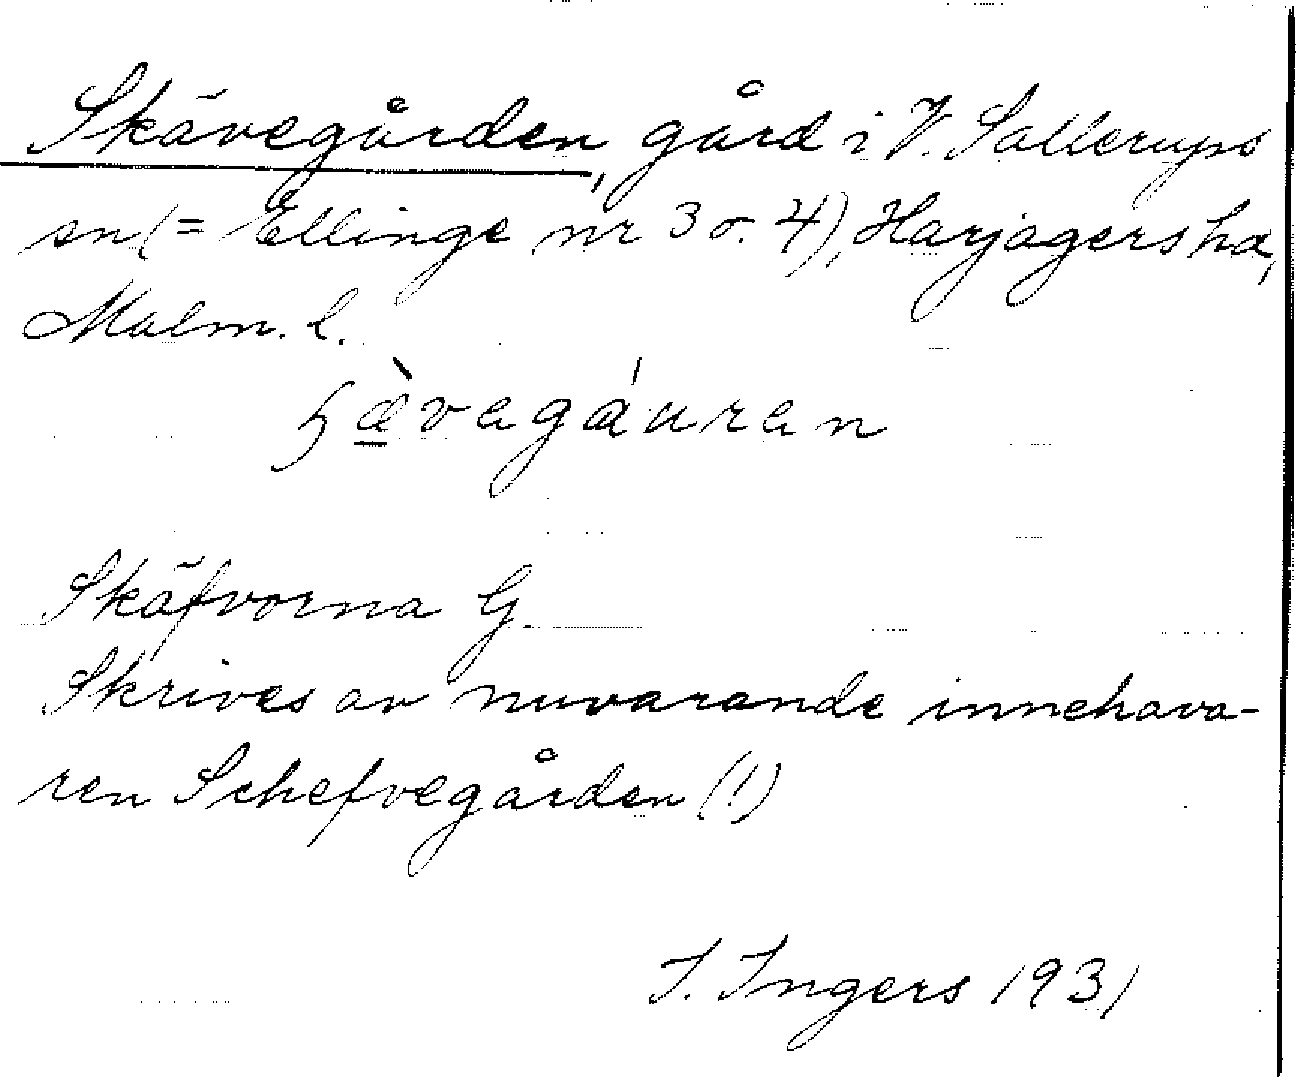 Skävegården, gård i V. Sallerups
sn (= Ellinge nr 3 o. 4), Harjagers hd,
Malm. l.
ʃæ̀vegáuren
Skäfvorna G.
Skrives av nuvarande innehava-
ren Schefvegården (!)
I. Ingers 1931